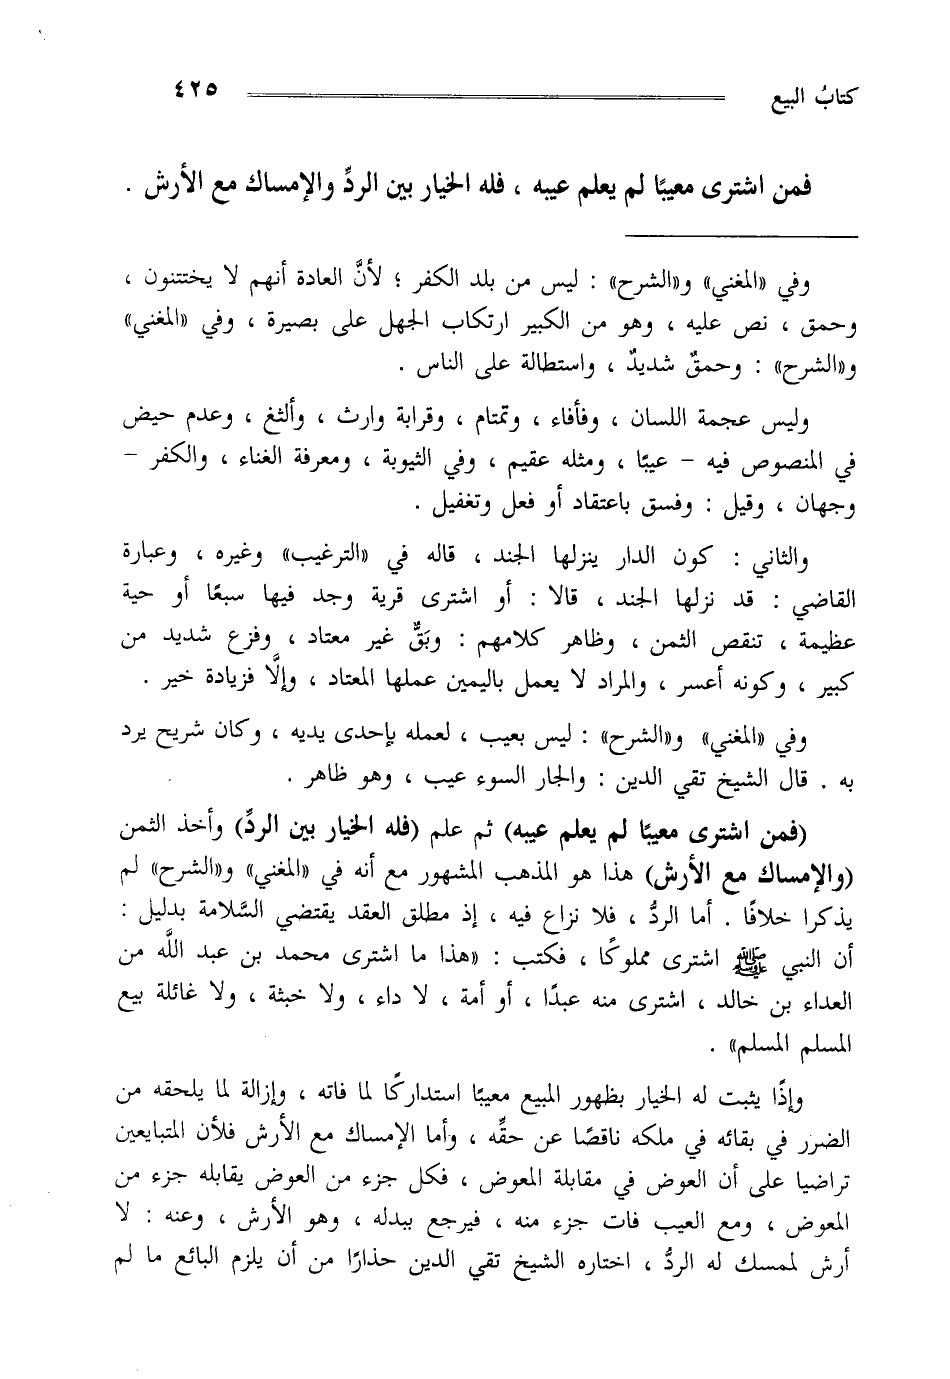 كتابُ البيع ٤٢٥
فمن اشترى معيبًا لم يعلم عيبه ، فله الخيار بين الردِّ والإمساك مع الأرش .
وفي «المغني» و«الشرح» : ليس من بلد الكفر ؛ لأنَّ العادة أنهم لا يختتنون ،
وحمق ، نص عليه ، وهو من الكبير ارتكاب الجهل على بصيرة ، وفي «المغني»
و«الشرح» : وحمقٌ شديدٌ ، واستطالة على الناس .
وليس عجمة اللسان ، وفأفاء ، وتمتام ، وقرابة وارث ، وألثغ ، وعدم حيض
في المنصوص فيه – عيبًا ، ومثله عقيم ، وفي الثيوبة ، ومعرفة الغناء ، والكفر –
وجهان ، وقيل : وفسق باعتقاد أو فعل وتغفيل .
والثاني : كون الدار ينزلها الجند ، قاله في «الترغيب» وغيره ، وعبارة
القاضي : قد نزلها الجند ، قالا : أو اشترى قرية وجد فيها سبعًا أو حية
عظيمة ، تنقص الثمن ، وظاهر كلامهم : وبَقٌّ غير معتاد ، وفزع شديد من
كبير ، وكونه أعسر ، والمراد لا يعمل باليمين عملها المعتاد ، وإلَّا فزيادة خير .
وفي «المغني» و«الشرح» : ليس بعيب ، لعمله بإحدى يديه ، وكان شريح يرد
به . قال الشيخ تقي الدين : والجار السوء عيب ، وهو ظاهر .
(فمن اشترى معيبًا لم يعلم عيبه) ثم علم (فله الخيار بين الردِّ) وأخذ الثمن
(والإمساك مع الأرش) هذا هو المذهب المشهور مع أنه في «المغني» و«الشرح» لم
يذكرا خلافًا . أما الردُّ ، فلا نزاع فيه ، إذ مطلق العقد يقتضي السَّلامة بدليل :
أن النبي ﷺ اشترى مملوكًا ، فكتب : «هذا ما اشترى محمد بن عبد اللَّه من
العداء بن خالد ، اشترى منه عبدًا ، أو أمة ، لا داء ، ولا خبثة ، ولا غائلة بيع
المسلم المسلم» .
وإذًا يثبت له الخيار بظهور المبيع معيبًا استدراكًا لما فاته ، وإزالة لما يلحقه من
الضرر في بقائه في ملكه ناقصًا عن حقِّه ، وأما الإمساك مع الأرش فلأن المتبايعين
تراضيا على أن العوض في مقابلة المعوض ، فكل جزء من العوض يقابله جزء من
المعوض ، ومع العيب فات جزء منه ، فيرجع ببدله ، وهو الأرش ، وعنه : لا
أرش لممسك له الردُّ ، اختاره الشيخ تقي الدين حذارًا من أن يلزم البائع ما لم